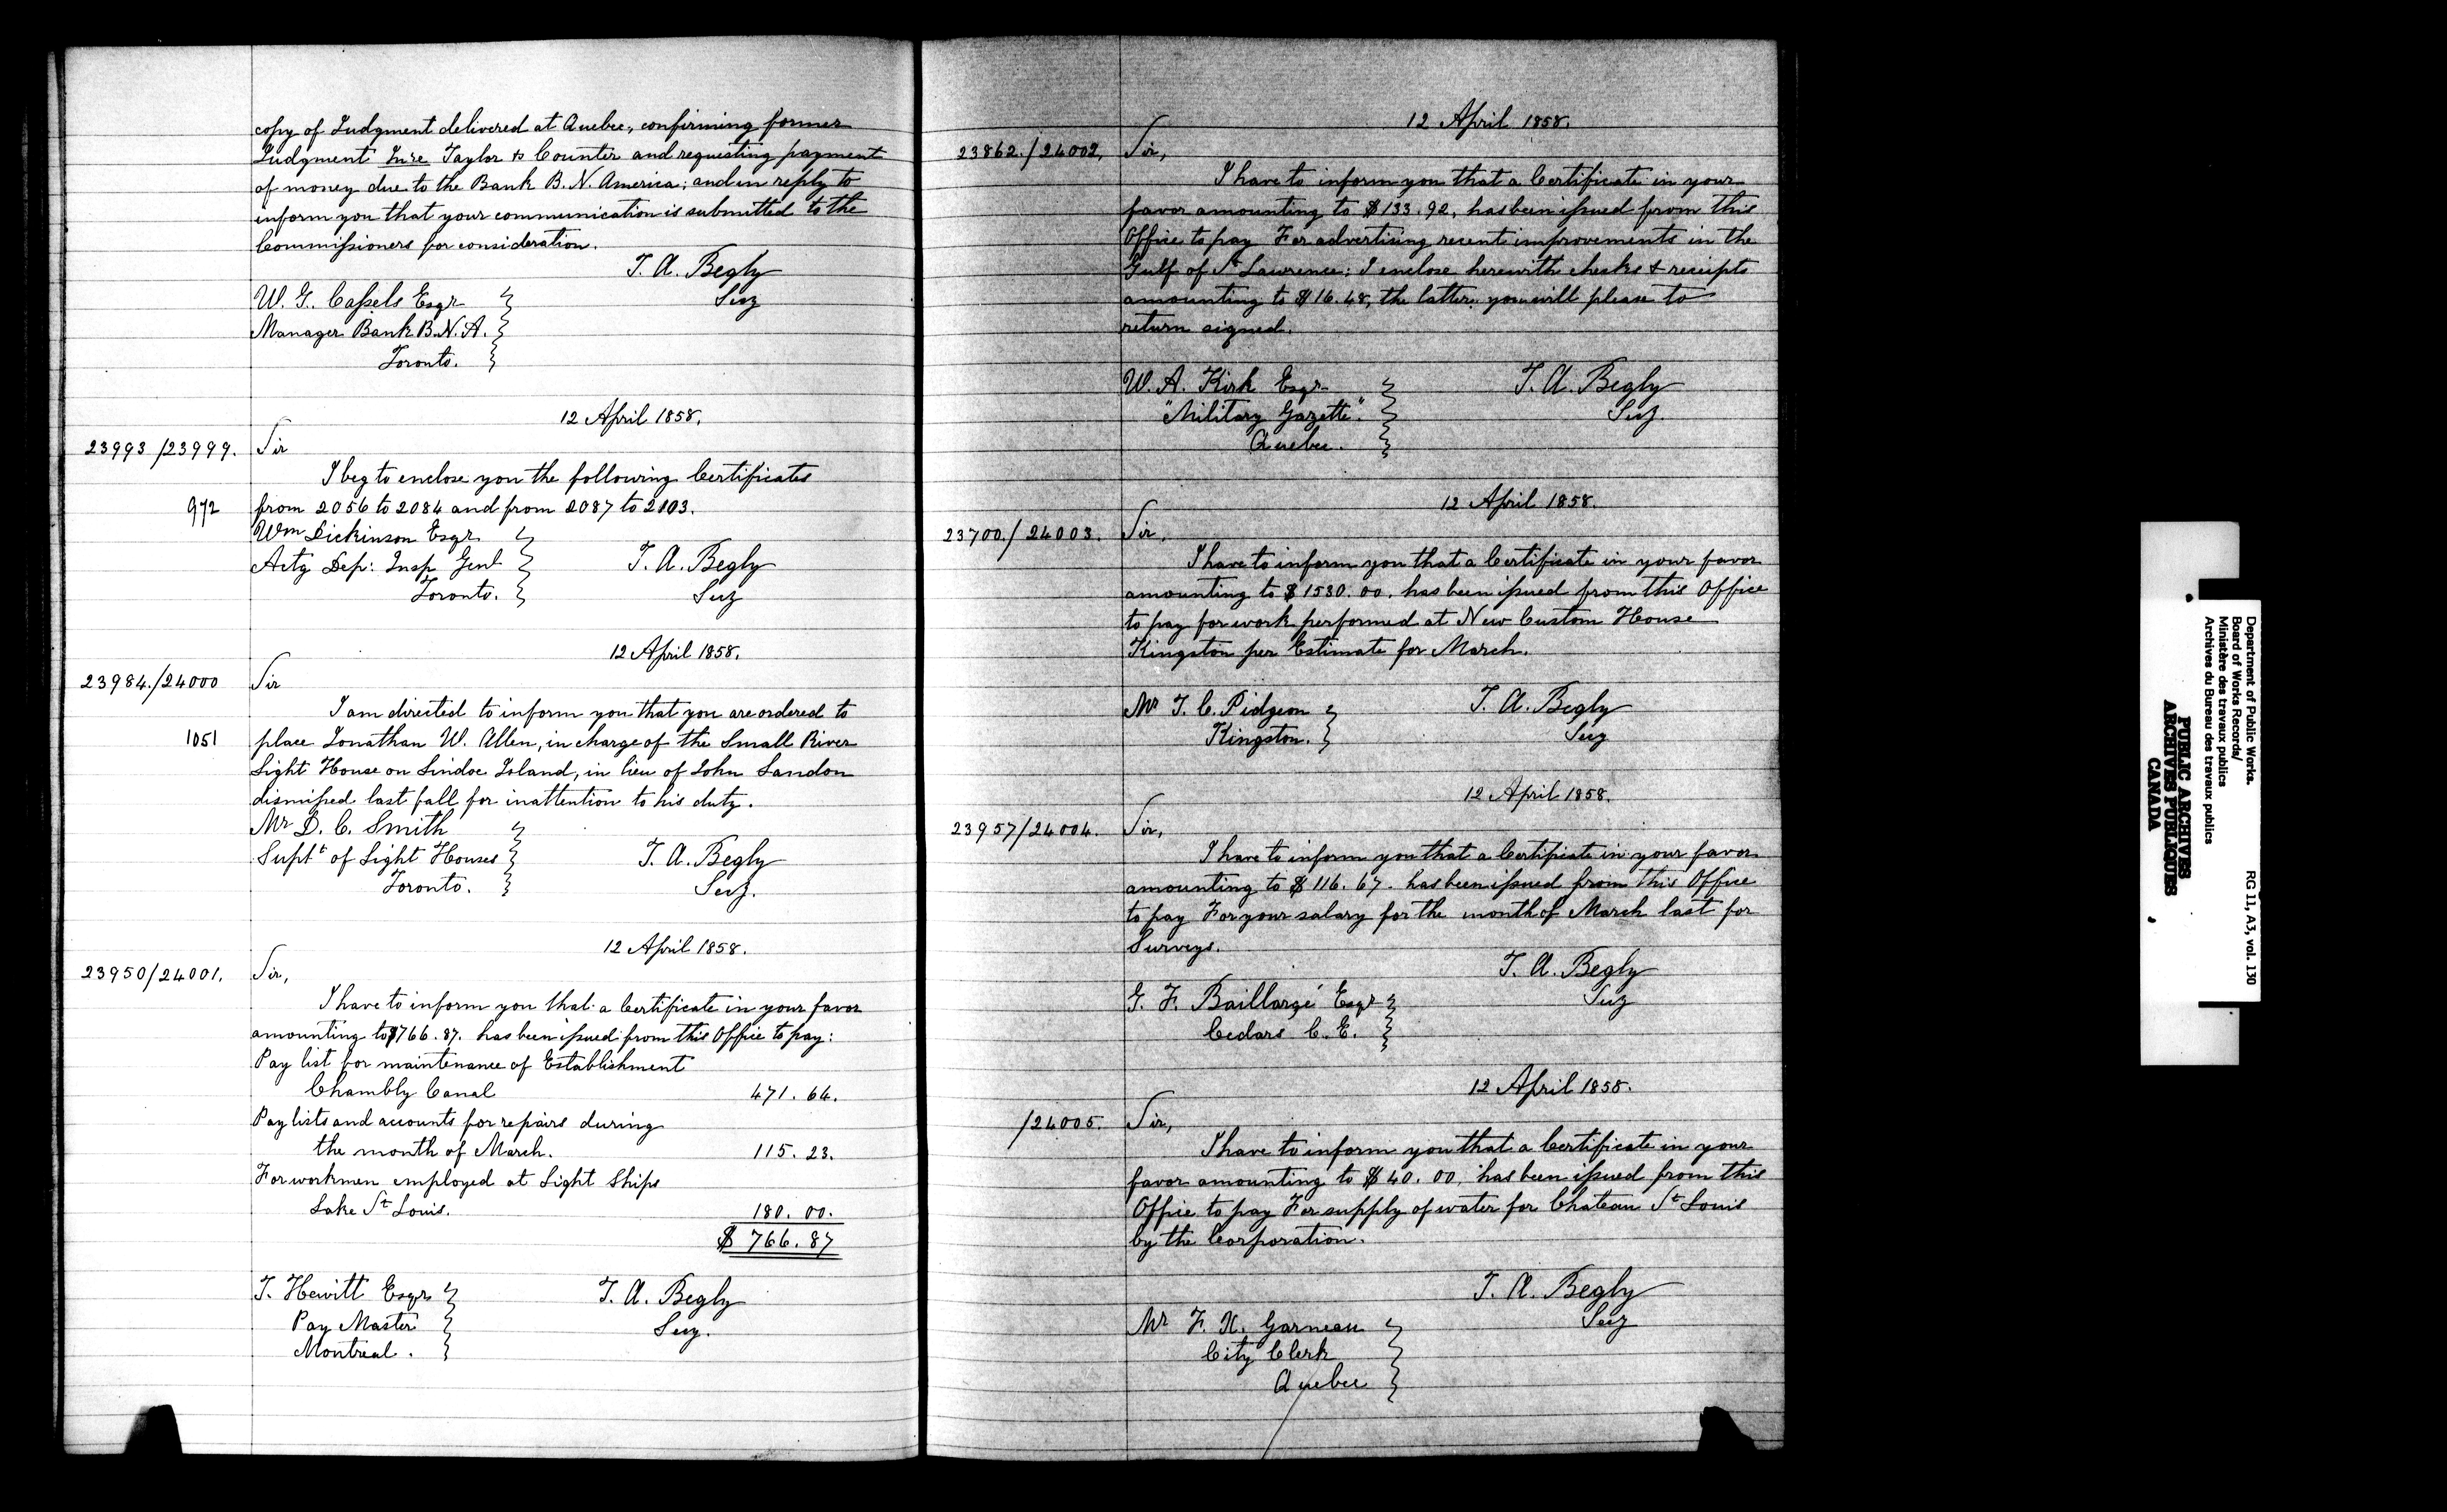 copy of Judgment delivered at Quebec, confirming former
Judgment In re Taylor vs Counter and requesting payment
of money due to the Bank B. N. America; and in reply to
inform you that your communication is submitted to the
Commissioners for consideration.
T. A. Begly
Secy
W. G. Cassels Esqr
Manager Bank B.N.A.
Toronto.
12 April 1858.
23993/23999. Sir
I beg to enclose you the following Certificates
972 from 2056 to 2084 and from 2087 to 2103.
Wm Dickinson Esqr
Actg Dep: Insp Genl T. A. Begly
Toronto. Secy
12 April 1858.
23984./24000 Sir
I am directed to inform you that you are ordered to
1051 place Jonathan W. Allen, in charge of the Small River
Light House on Lindoe Island, in lieu of John Landon
dismissed last fall for inattention to his duty.
Mr D. C. Smith
Supt of Light Houses T. A. Begly
Toronto. Secy.
12 April 1858.
23950/24001. Sir,
I have to inform you that a Certificate in your favor
amounting to $766.87. has been issued from this Office to pay:
Pay list for maintenance of Establishment
Chambly Canal 471.64.
Pay lists and accounts for repairs during
the month of March. 115.23.
For workmen employed at Light Ships
Lake St Louis. 180.00.
$ 766.87
T. Hewitt Esqr T. A. Begly
Pay Master Secy.
Montreal.
12 April 1858.
23862./24002, Sir,
I have to inform you that a Certificate in your
favor amounting to $133.92, has been issued from this
Office to pay For advertising recent improvements in the
Gulf of St Lawrence: I enclose herewith checks & receipts
amounting to $16.48, the latter you will please to
return signed.
W. A. Kirk Esqr T. A. Begly
"Military Gazette". Secy.
Quebec.
12 April 1858.
23700./24003. Sir,
I have to inform you that a Certificate in your favor
amounting to $1530.00. has been issued from this Office
to pay for work performed at New Custom House
Kingston per Estimate for March.
Mr T. C. Pidgeon T. A. Begly
Kingston. Secy
12 April 1858.
23957/24004. Sir,
I have to inform you that a Certificate in your favor
amounting to $116.67. has been issued from this Office
to pay For your salary for the month of March last for
Surveys.
T. A. Begly
G. F. Baillargé Esqr Secy
Cedars C. E.
12 April 1858.
/24005. Sir,
I have to inform you that a Certificate in your
favor amounting to $40.00, has been issued from this
Office to pay For supply of water for Chateau St Louis
by the Corporation.
T. A. Begly
Mr F. X. Garneau Secy
City Clerk
Quebec
Department of Public Works.
Board of Works Records/
Ministère des travaux publics
Archives du Bureau des travaux publics
RG 11, A3, vol. 130
PUBLIC ARCHIVES
ARCHIVES PUBLIQUES
CANADA